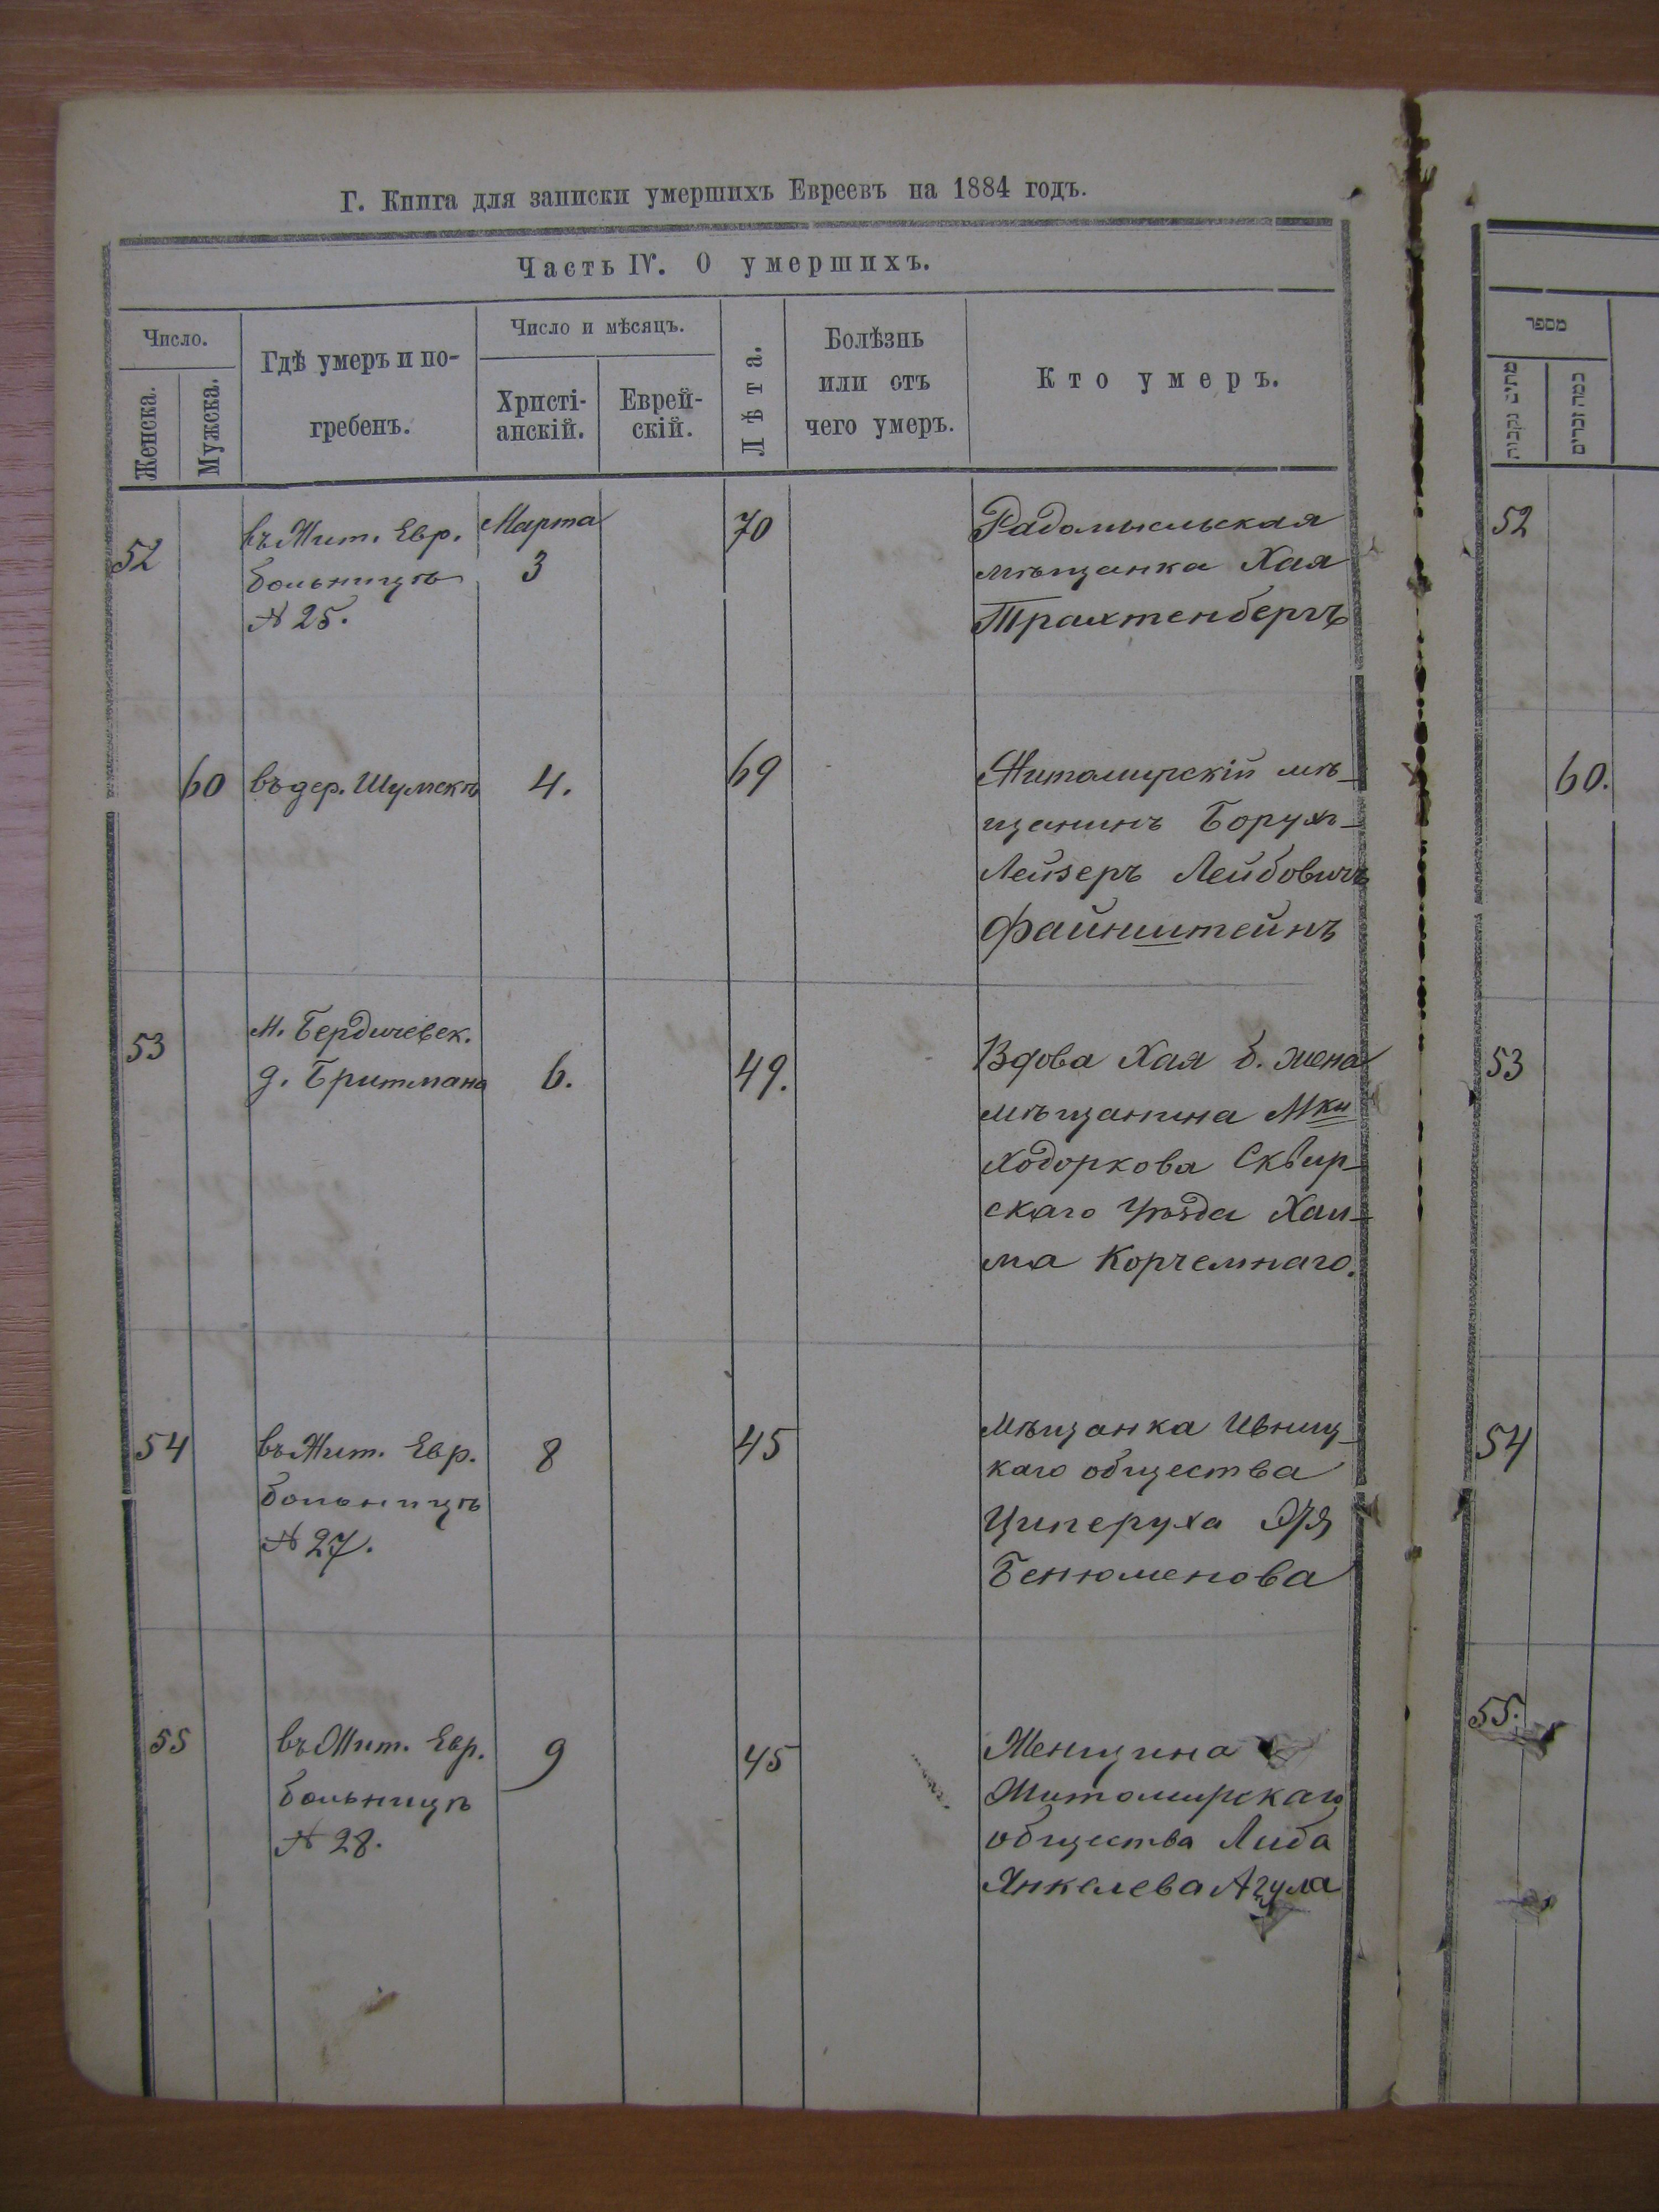 Г. Книга для записки умершихъ Евреевъ на 1884 годъ.
Часть IV. О умершихъ.
Число.
Женска.
Мужска.
Гдѣ умеръ и по-
гребенъ.
Число и мѣсяцъ.
Христі-
анскій.
Еврей-
скій.
Лѣта.
Болѣзнь
или отъ
чего умеръ.
Кто умеръ.
52
въ Жит. Евр.
больницѣ
№ 25.
Марта
3
70
Радомысльская
мѣщанка Хая
Трахтенбергъ
60
въ дер. Шумскъ
4.
69
Житомирскій мѣ-
щанинъ Борухъ-
Лейзеръ Лейбовичъ
Файнштейнъ
53
М. Бердичевск.
д. Бритмана
6.
49.
Вдова Хая б. жена
мѣщанина Мки
Ходоркова Сквир-
скаго Уѣзда Хаи-
ма Корчемнаго.
54
въ Жит. Евр.
больницѣ
№ 27.
8
45
Мѣщанка Ивниц-
каго общества
Циперуха
Бенюменова
55
въ Жит. Евр.
больницѣ
№ 28.
9
45
Женщина
Житомирскаго
общества Либа
Янкелева Агула
מספר
כמה זכרים
52
60.
53
54
55.